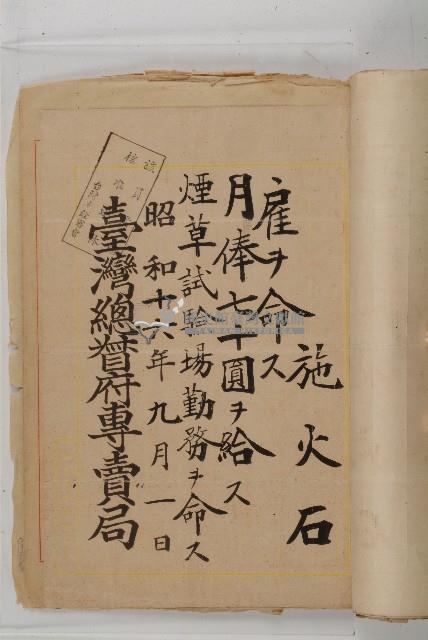 施火石
雇ヲ命ス
月俸七十圓ヲ給ス
煙草試驗場勤務ヲ命ス
昭和十六年九月一日
臺灣總督府專賣局